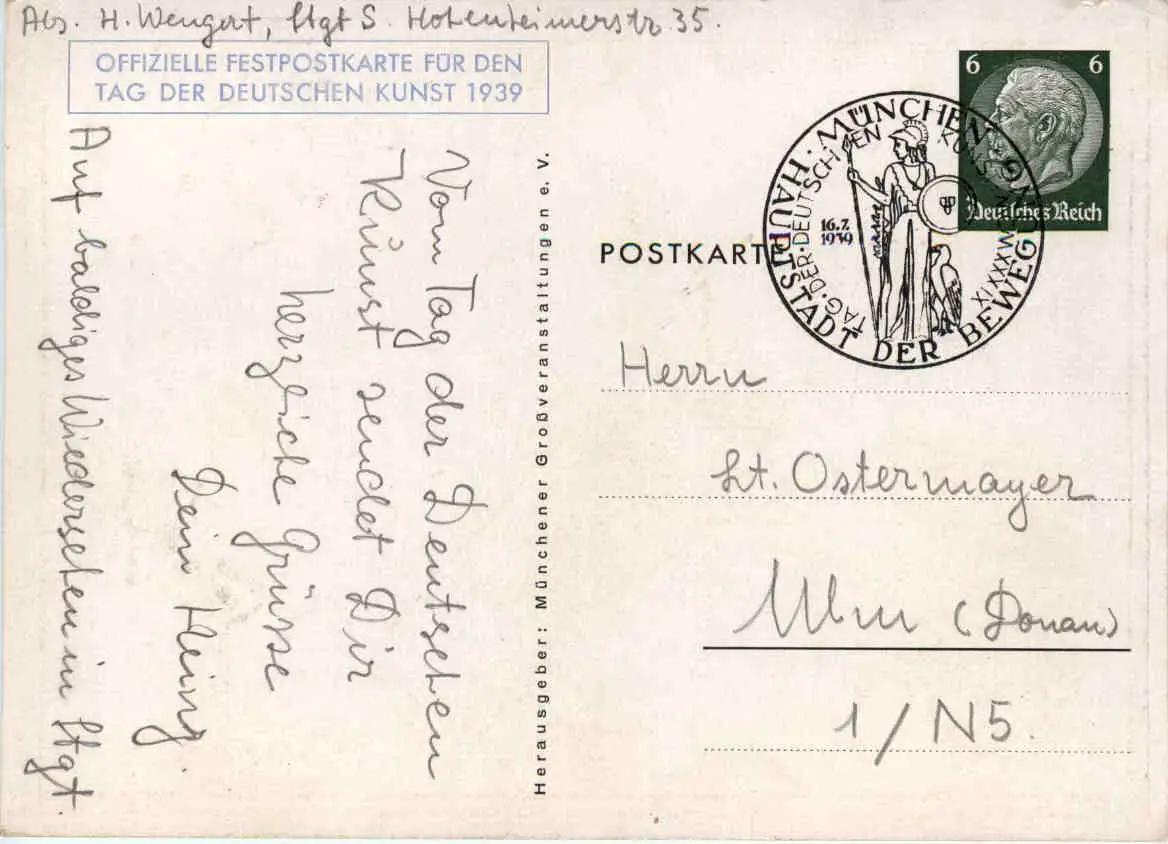 Abs. H. Wengert, Stgt S. Hohenheimerstr. 35.
OFFIZIELLE FESTPOSTKARTE FÜR DEN
TAG DER DEUTSCHEN KUNST 1939
Vom Tag der Deutschen
Kunst sendet Dir
herzliche Grüsse
Dein Heinz.
Auf baldiges Wiedersehen in Stgt.
Herausgeber: Münchener Großveranstaltungen e. V.
6 6
Deutsches Reich
MÜNCHEN · HAUPTSTADT DER BEWEGUNG
TAG · DER · DEUTSCHEN KUNST
16.7.
1939
POSTKARTE
Herrn
Lt. Ostermayer
Ulm (Donau)
1/N5.